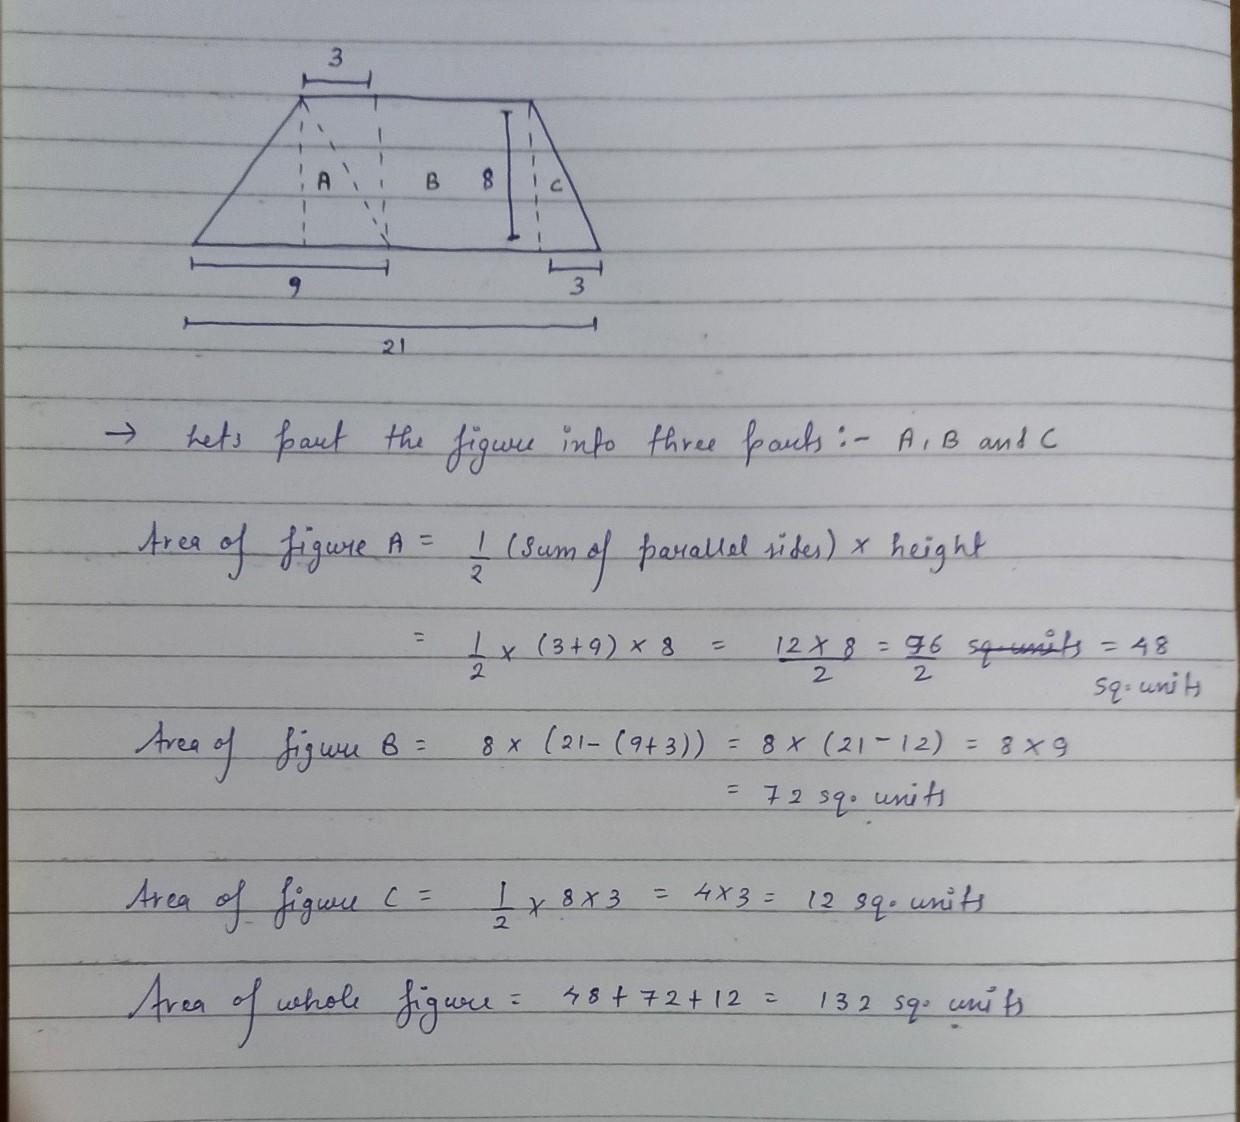 3
A B 8 C
9 3
21
→ Lets part the figure into three parts :- A, B and C
Area of figure A = 1/2 (Sum of parallel sides) × height
= 1/2 × (3+9) × 8 = 12 × 8/2 = 96/2 sq units = 48
sq. units
Area of figure B = 8 × (21 - (9+3)) = 8 × (21 - 12) = 8 × 9
= 72 sq. units
Area of figure C = 1/2 × 8 × 3 = 4 × 3 = 12 sq. units
Area of whole figure = 48 + 72 + 12 = 132 sq. units